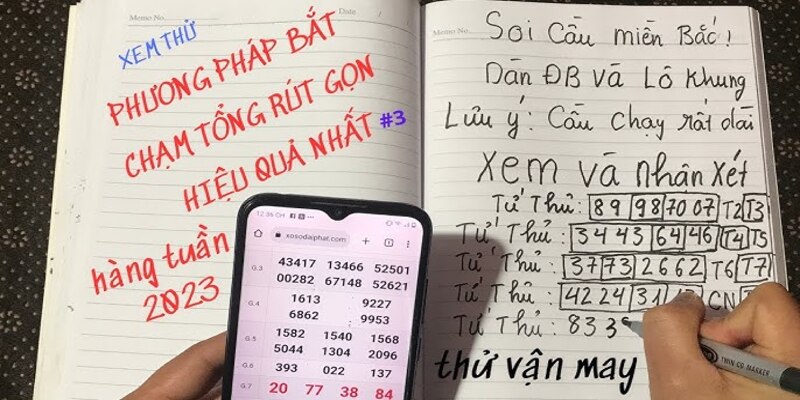 Memo No.
Date
XEM THỬ
PHƯƠNG PHÁP BẮT
CHẠM TỔNG RÚT GỌN
HIỆU QUẢ NHẤT #3
hàng tuần
2023
12:36 CH
xosodaiphat.com
G.3 43417 13466 52501
00282 67148 52621
G.4 1613 9227
6862 9953
G.5 1582 1540 1568
5044 1304 2096
G.6 393 022 137
G.7 20 77 38 84
Memo No.
Soi Cầu miền Bắc!
Dàn ĐB Và Lô Khung
Lưu ý: Cầu chạy rất dài
Xem và Nhận Xét
Tứ Thủ: 89 98 70 07 T2 T3
Tứ Thủ: 34 43 64 46 T4 T5
Tứ Thủ: 37 73 26 62 T6 T7
Tứ Thủ: 42 24 31 CN
Tứ Thủ: 83 38
thử vận may
TWIN CD MARKER